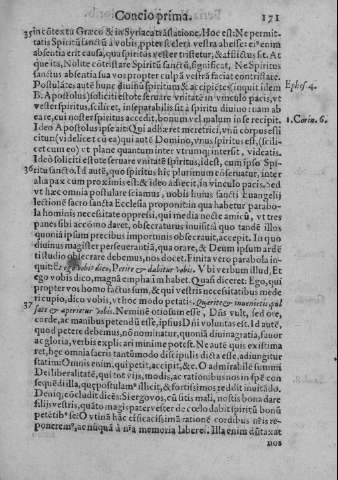 Concio prima. 171
35 in cõtextu Græco & in Syriaca trãslatione. Hoc est: Ne permit-
tatis Spiritũ sanctũ a vobis, ppter scelera vestra abesse: ei⁹ enim
absentia erit causa, qua spiritus vester tristetur, & afflictus sit. At
que ita, Nolite cõtristare Spiritũ sanctũ, significat, Ne Spiritus
sanctus absentia sua vos propter culpã vestrã faciat contristare.
Postulãtes autẽ hunc diuinũ spiritum & accipiẽtes, inquit idem Ephes. 4.
B. Apostolus) soliciti estote seruare vnitatẽ in vinculo pacis, vt
vester spiritus, scilicet, inseparabilis sit a spiritu diuino: nam ab
eare, cui noster spiritus accedit, bonum vel malum in se recipit. 1. Corin. 6.
Ideo Apostolus ipse ait: Qui adhæret meretrici, vnũ corpus effi
citur: (videlicet cũ ea) qui autẽ Domino, vnus spiritus est, (scili-
cet cum eo) vt plane quantum inter vtrumq; intersit, videatis.
Ideo soliciti estote seruare vnitatẽ spiritus, idest, cum ipso Spi-
36 ritu sancto. Id autẽ, quo spiritus hic plurimum cõseruatur, inter
alia pax cum proximis est: & ideo adiecit, in vinculo pacis. Sed
vt hæc omnia postulare sciamus, nobis huius sancti Euangelij
lectionẽ sacro sancta Ecclesia proponit: in qua habetur parabo-
la hominis necessitate oppressi, qui media nocte amicũ, vt tres
panes sibi accõmo daret, obsecraturus inuisit: a quo tandẽ illos
quoniã ipsum precibus importunis obsecrauit, accepit. In quo
diuinus magister perseuerantiã, qua orare, & Deum ipsum ardẽ
ti studio obsecrare debemus, nos docet. Finita vero parabola in-
quit: Et ego vobis dico, Petite & dabitur vobis. Vbi verbum illud, Et
ego vobis dico, magnã emphasim habet. Quasi diceret: Ego, qui
propter vos homo factus sum, & qui vestris necessitatibus mede
ri cupio, dico vobis, vt hoc modo petatis. Quærite & inuenietis, pul
37 sate & aperietur vobis. Neminẽ otiosum esse, Dñs vult, sed ore,
corde, ac manibus petendũ esse, ipsius Dñi voluntas est. Id autẽ,
quod petere debemus, nõ nominatur, quoniã diuina gratia, fauor
ac gloria, verbis expli: ari minime potest. Ne autẽ quis existima
ret, hęc omnia sacris tantũmodo discipulis dicta esse, adiungitur
statim: Omnis enim, qui petit, accipit, &c. O admirabile summi
Dei liberalitatẽ, qui tot vijs, modis, ac rationibus nos in spẽ con
sequẽdi illa, quę postulam⁹ illicit, & fortissimos reddit inuitãdo.
Deniq; cõcludit dicẽs: Si ergo vos, cũ sitis mali, nostis bona dare
filijs vestris, quãto magis pater vester de cœlo dabit spiritũ bonũ
petẽtib⁹ se? O vtinã hæc efficacissimã rationẽ cordibus nr̃is re-
poneremus, ac nũquã à nr̃a memoria laberet. Illa enim dũtaxat
nos